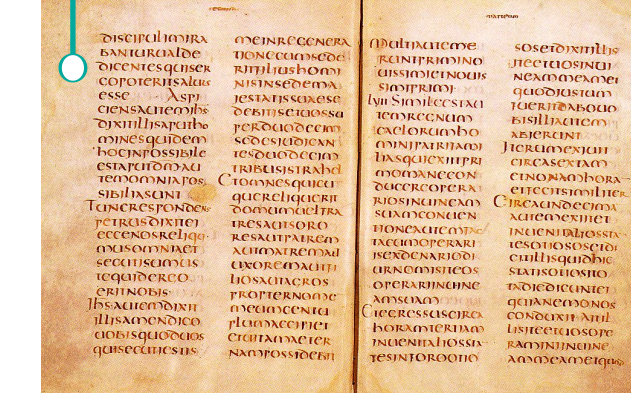 DISCIPULIMIRA
BANTURUALDE
DICENTESQUISER
GOPOTERITSALUUS
ESSE ASPI
CIENSAUTEMIHS
DIXITILLISAPUTHO
MINESQUIDEM
HOCINPOSSIBILE
ESTAPUTDMAU
TEMOMNIAPOS
SIBILIASUNT
TUNCRESPONDENS
PETRUSDIXITEI
ECCENOSRELIQ
MUSOMNIAET
SECUTISUMUS
TEQUIDERGO
ERITNOBIS
IHSAUTEMDIXIT
ILLISAMENDICO
UOBISQUODUOS
QUISECUTIESTIS
MEINREGENERA
TIONECUMSEDE
RITFILIUSHOMI
NISINSEDEMA
IESTATISSUAESE
DEBITISETUOSSU
PERDUODECIM
SEDESIUDICAN
TESDUODECIM
TRIBUSISTRAHEL
ETOMNESQUICU
QUERELIQUERIT
DOMUMUELFRA
TRESAUTSORO
RESAUTPATREM
AUTMATREMAU
UXOREMAUTFI
LIOSAUTAGROS
PROPTERNOME
MEUMCENTU
PLUMACCIPIET
ETUITAMAETER
NAMPOSSIDEBIT
MULTIAUTEME
RUNTPRIMINO
UISSIMIETNOUIS
SIMIPRIMI
SIMILEESTAU
TEMREGNUM
CAELORUMHO
MINIPATRIFAMI
LIASQUIEXIITPRI
MOMANECON
DUCEREOPERA
RIOSINUINEAM
SUAMCONUEN
TIONEAUTEM
FACTACUMOPERARI
ISEXDENARIODI
URNOMISITEOS
OPERARIINUINE
AMSUAM
ETEGRESSUSCIRCA
HORAMTERTIAM
INUENITALIOSSTA
TESINFOROOTIO
SOSETDIXITILLIS
ITEETUOSINUI
NEAMMEAMET
QUODIUSTUM
FUERITDABOUO
BISILLIAUTEM
ABIERUNT
ITERUMEXIIT
CIRCASEXTAM
ETNONAMHORA
ETFECITSIMILITER
CIRCAUNDECIMA
AUTEMEXIIET
INUENITALIOSSTA
TESOTIOSOSETDI
CITILLISQUIDHIC
STATISOTIOSITO
TADIEDICUNTEI
QUIANEMONOS
CONDUXITAITIL
LISITEETUOSOPE
RAMINIINUINE
AMMEAMETQUO